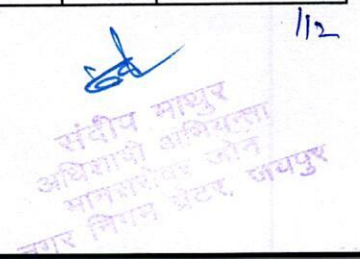 1/2
संदीप माथुर
अधिशाषी अभियन्ता
मानसरोवर जोन
नगर निगम ग्रेटर, जयपुर